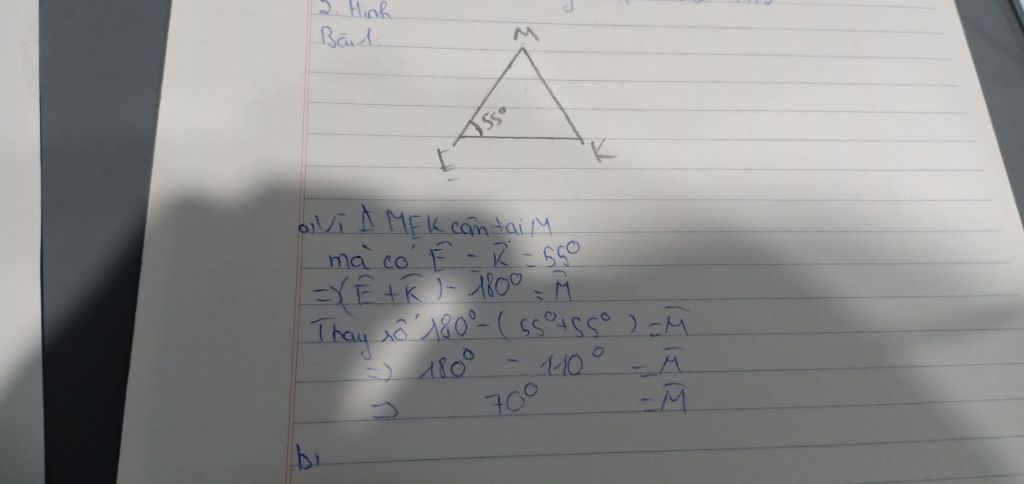 2. Hình
Bài 1:
M
55°
E
K
a, Vì Δ MEK cân tại M
mà có Ê - K̂ = 55°
=> (Ê + K̂) - 180° = M̂
Thay số 180° - (55° + 55°) = M̂
=> 180° - 110° = M̂
=> 70° = M̂
b,